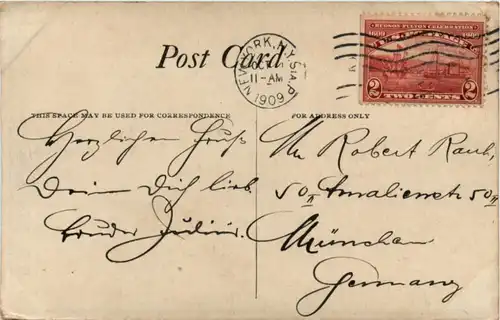 Post Card
NEW YORK, N.Y. STA. P
11-AM
1909
HUDSON-FULTON CELEBRATION
1609 1909
2 2
TWO CENTS
THIS SPACE MAY BE USED FOR CORRESPONDENCE
FOR ADDRESS ONLY
Herzlichen Gruß
Dein Dich lieb.
Bruder Julius.
Robert Rau
50 II Amalienstr 50 II
München
Germany